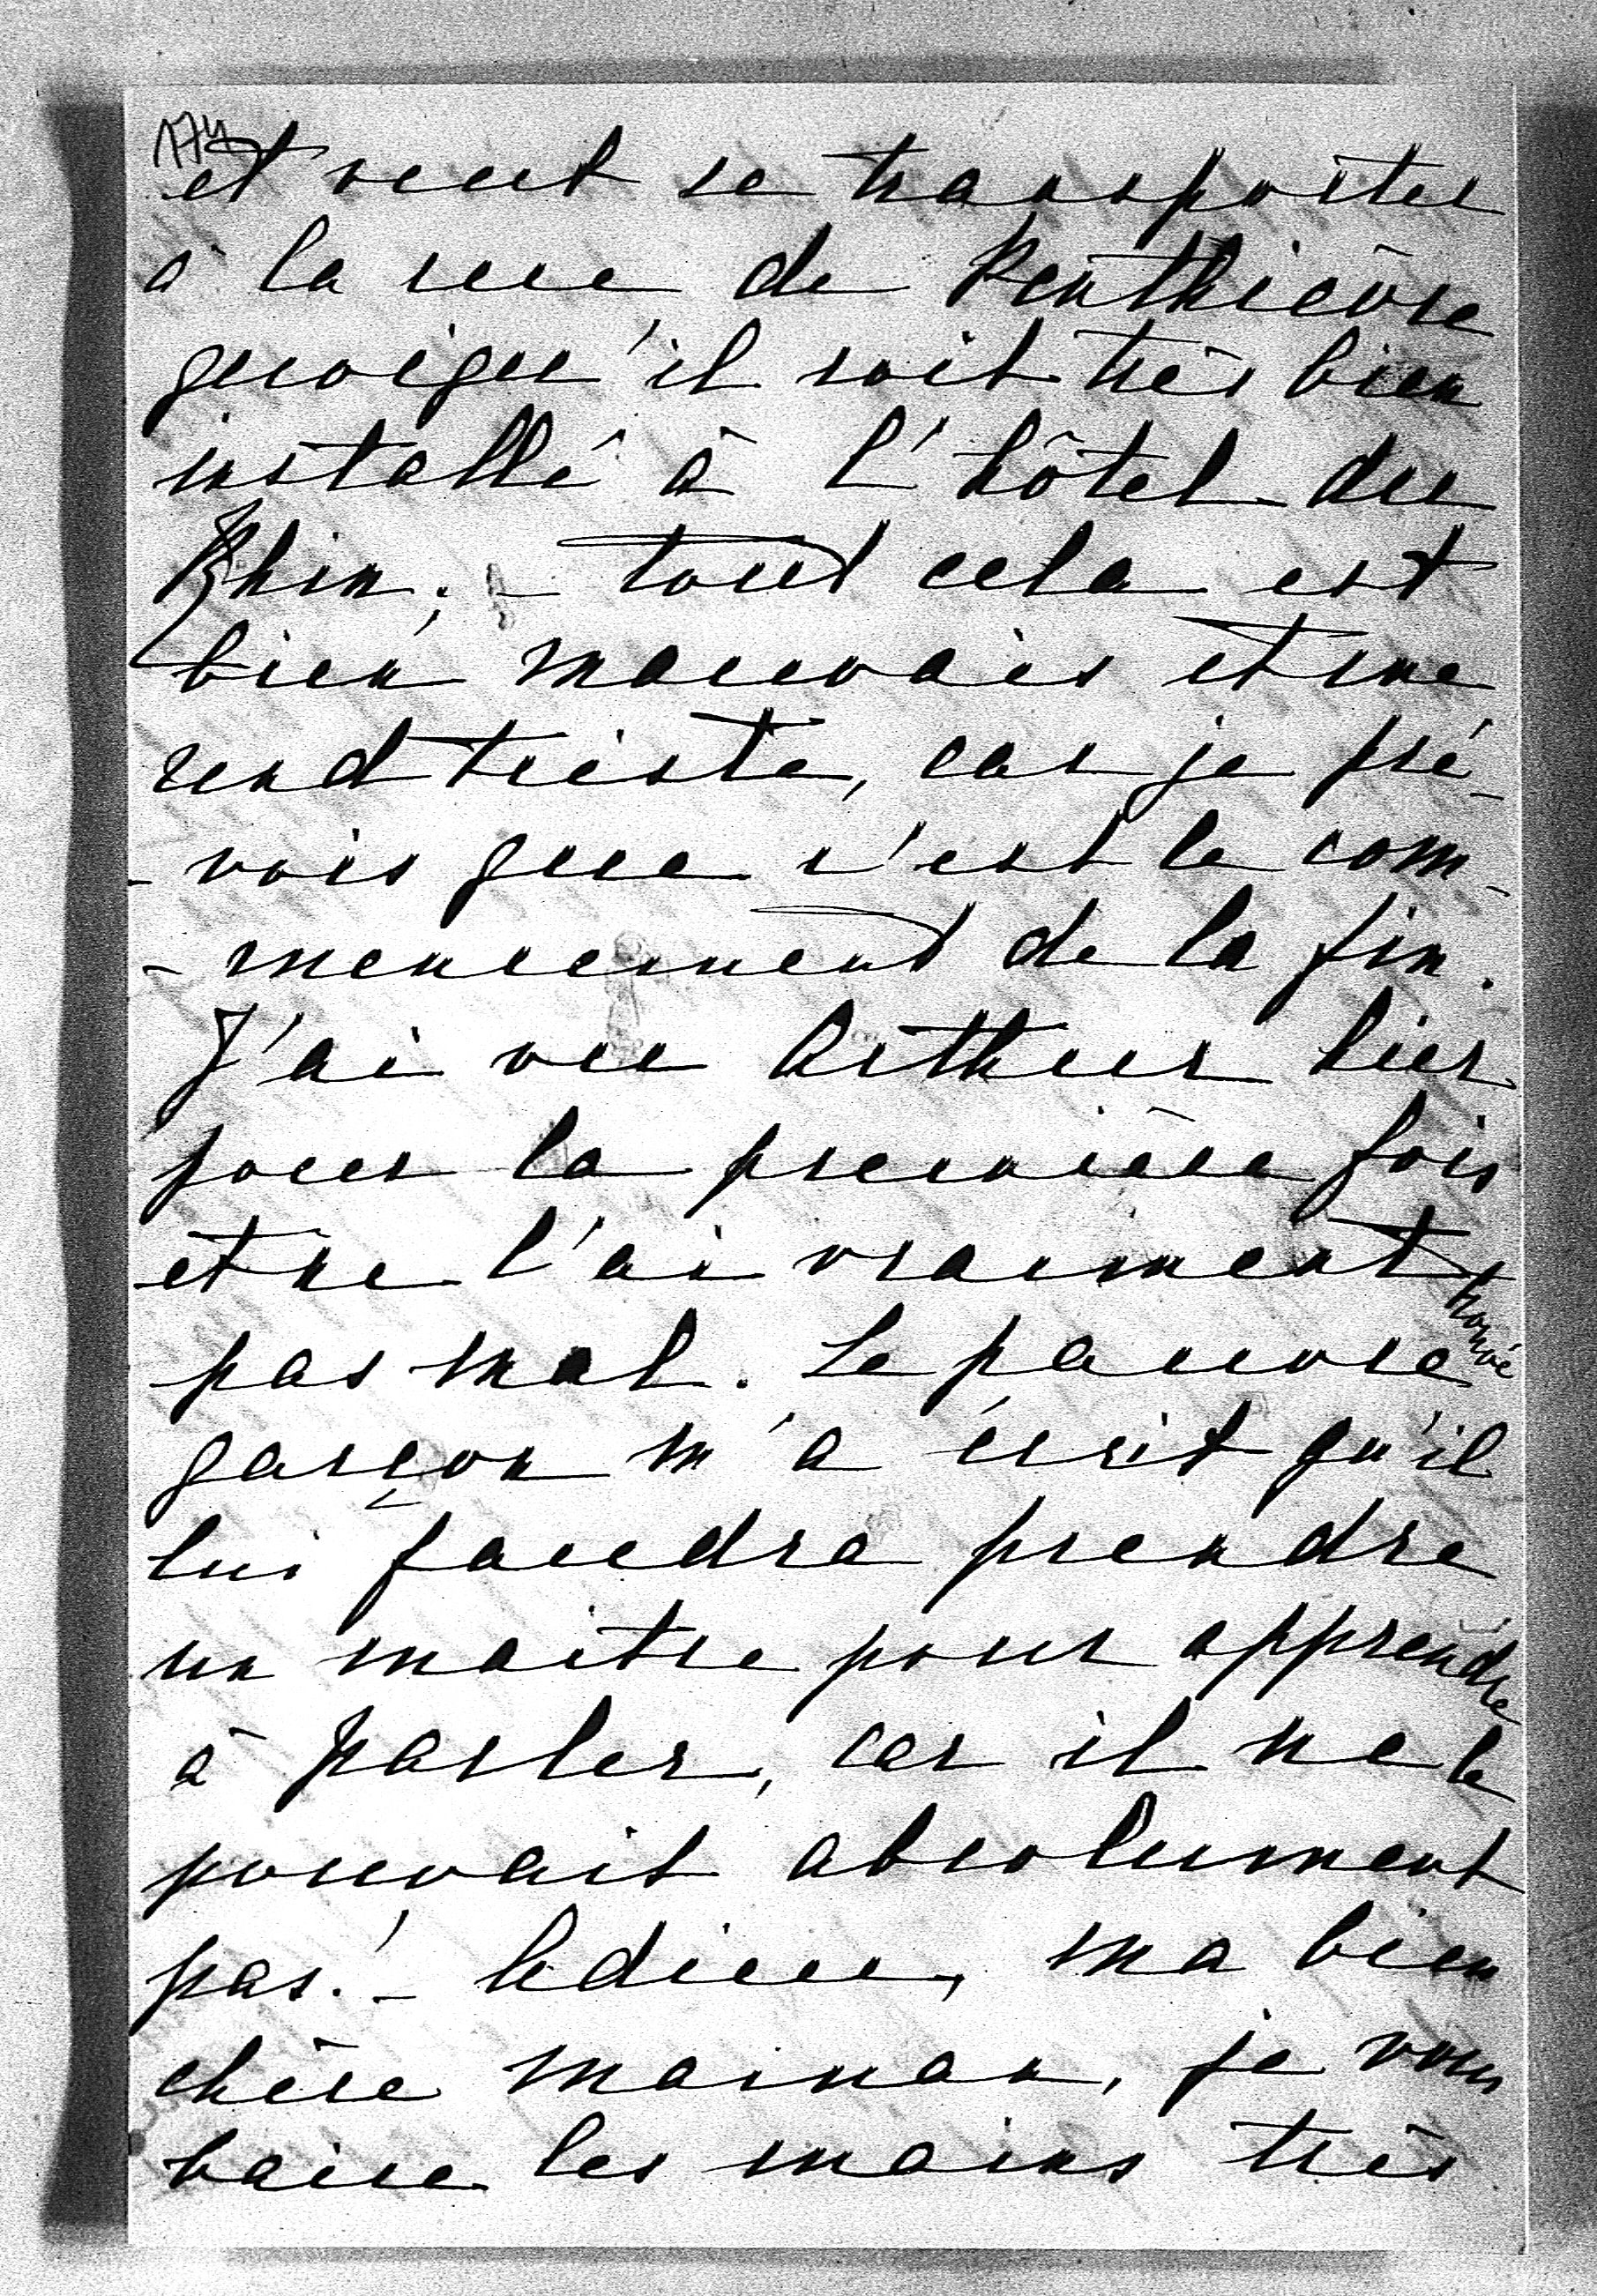 174
et veut se transporter
à la rue de Penthièvre
quoiqu'il soit très bien
installé à l'hôtel du
Rhin; - tout cela est
bien mauvais et me
rend triste, car je pré-
- vois que c'est le com-
- mencement de la fin.
J'ai vu Arthur hier
pour la première fois
et ne l'ai vraiment trouvé
pas mal. Le pauvre
garçon m'a écrit qu'il
lui faudra prendre
un maitre pour apprendre
à parler, car il ne le
pouvait absolument
pas! - Adieu, ma bien
chère maman, je vous
baise les mains très